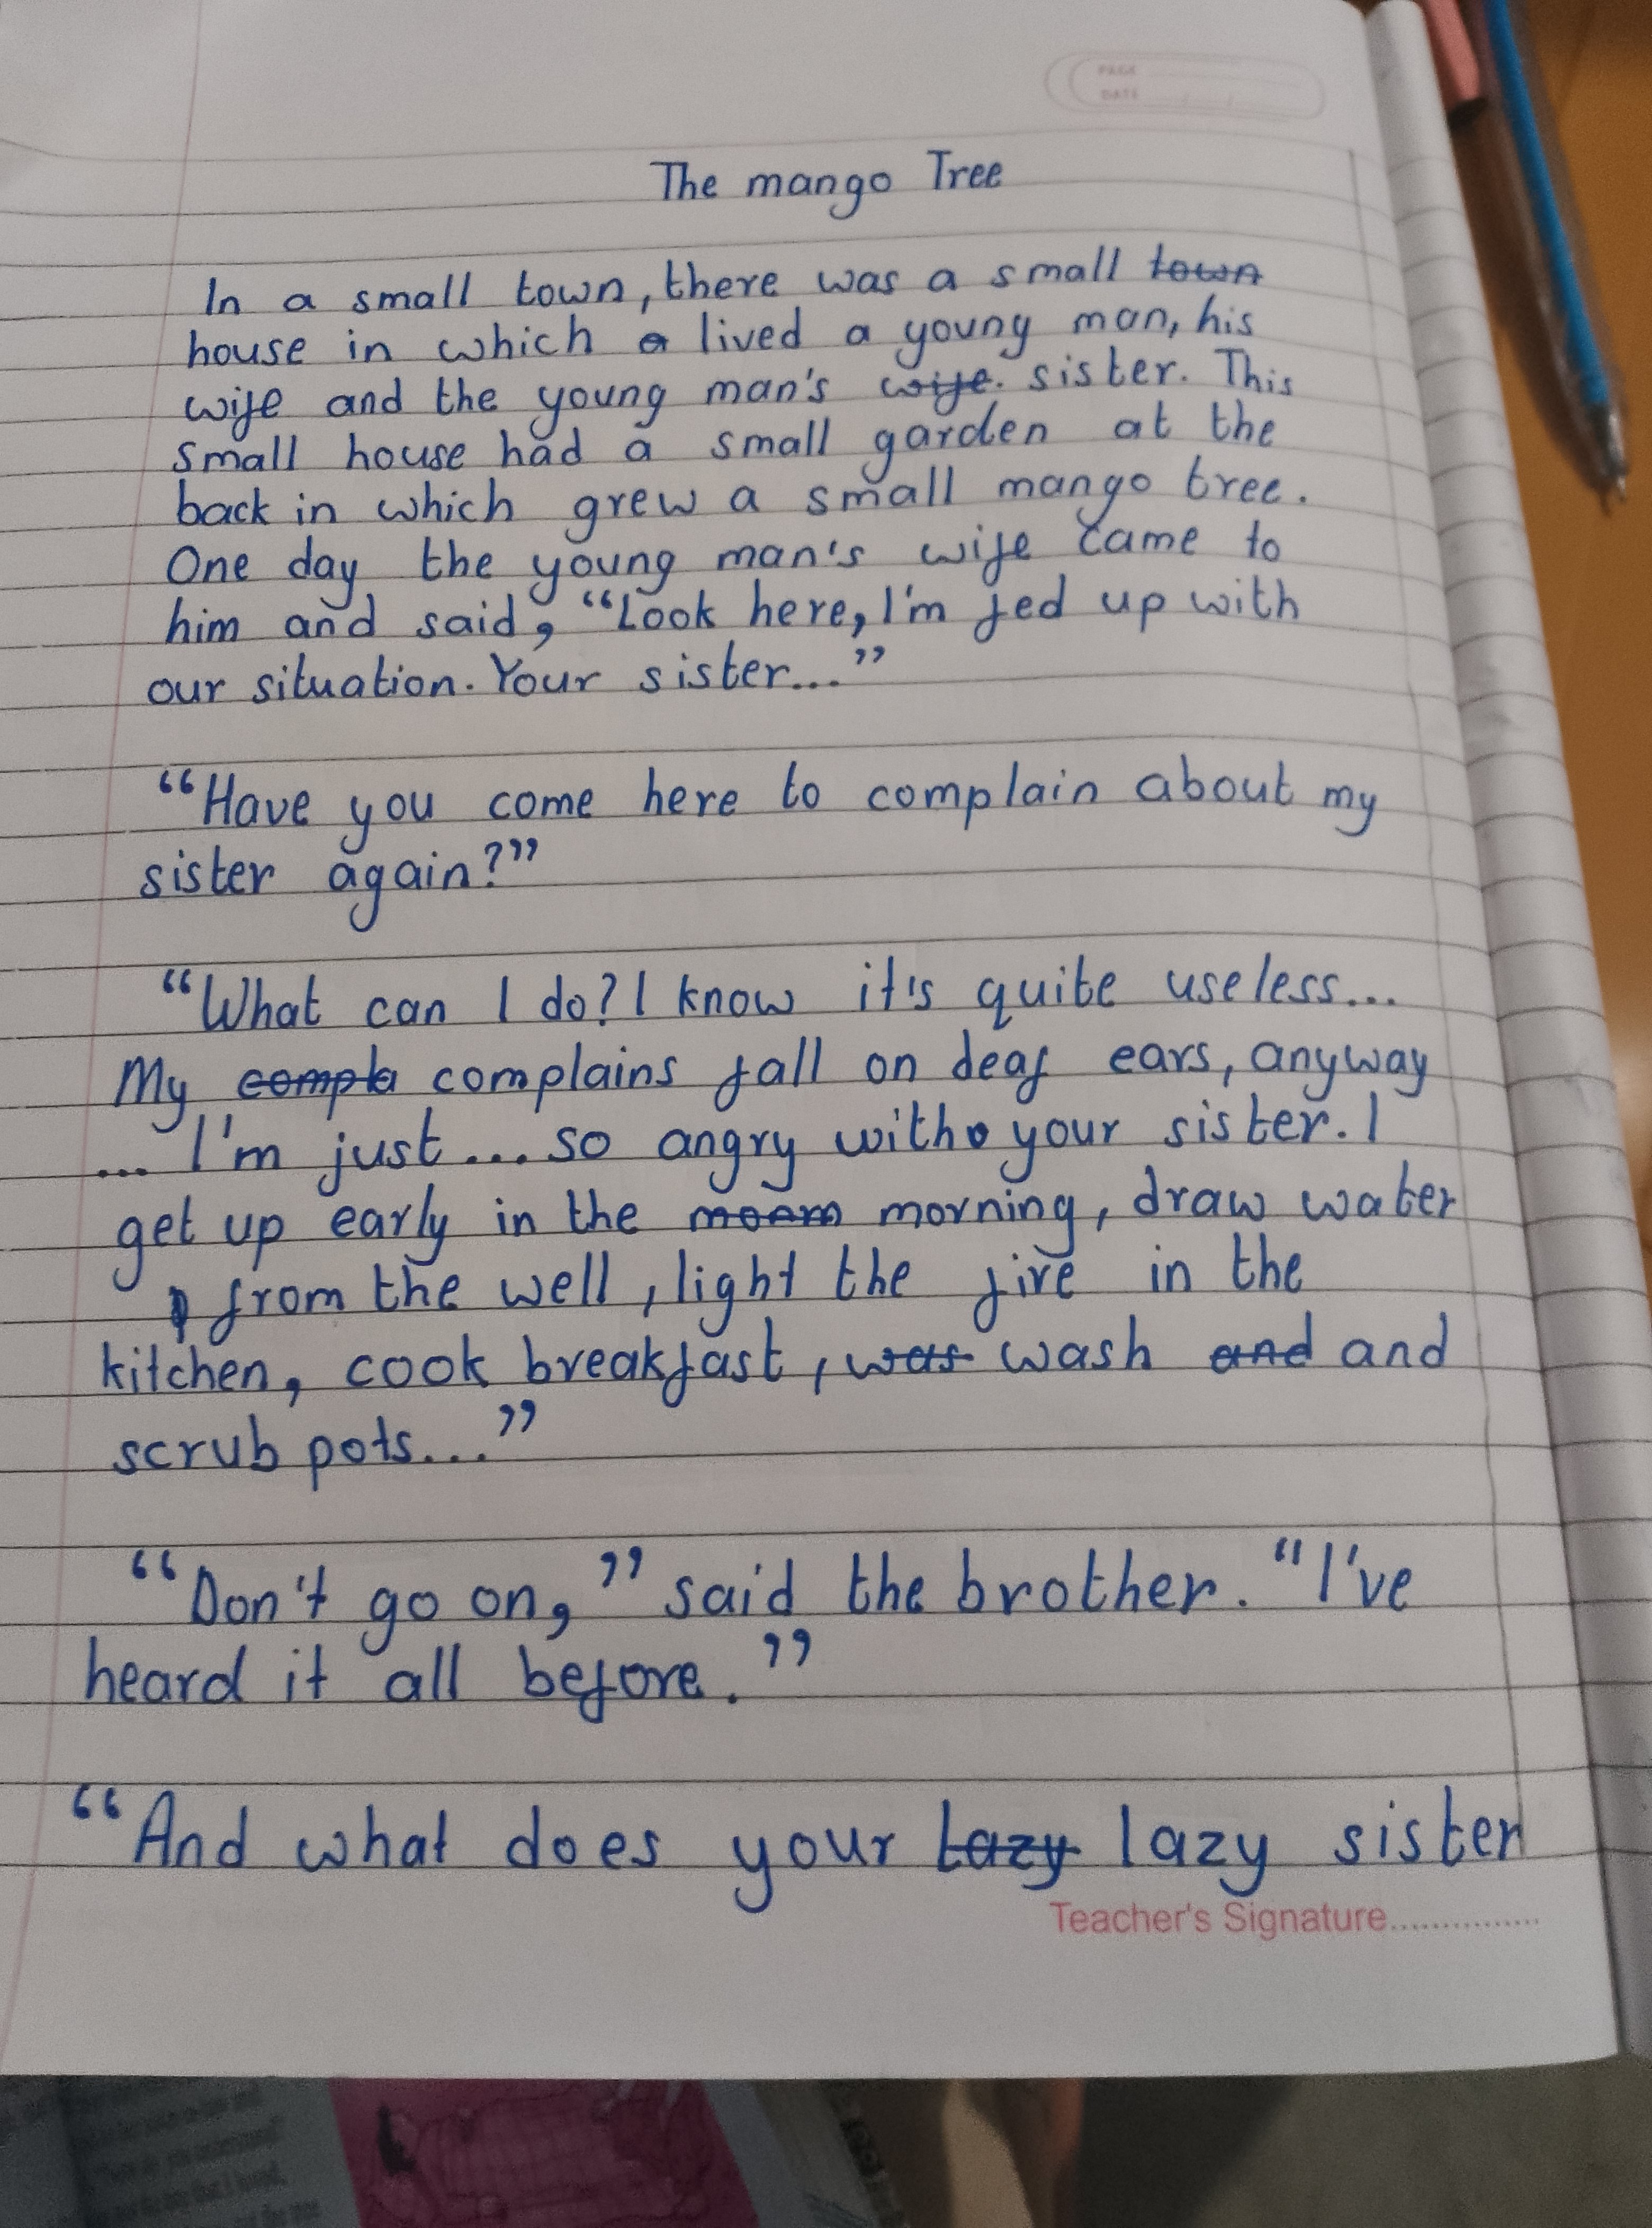 PAGE
DATE
The mango Tree
In a small town, there was a small ~~town~~
house in which ~~a~~ lived a young man, his
wife and the young man's ~~wife.~~ sister. This
small house had a small garden at the
back in which grew a small mango tree.
One day the young man's wife came to
him and said, “Look here, I'm fed up with
our situation. Your sister...”
“Have you come here to complain about my
sister again?”
“What can I do? I know it's quite useless...
My ~~compla~~ complains fall on deaf ears, anyway
... I'm just... so angry with your sister. I
get up early in the ~~moarn~~ morning, draw water
from the well, light the fire in the
kitchen, cook breakfast, ~~was~~ wash ~~and~~ and
scrub pots...”
“Don't go on,” said the brother. “I've
heard it all before.”
“And what does your ~~lazy~~ lazy sister
Teacher's Signature...............